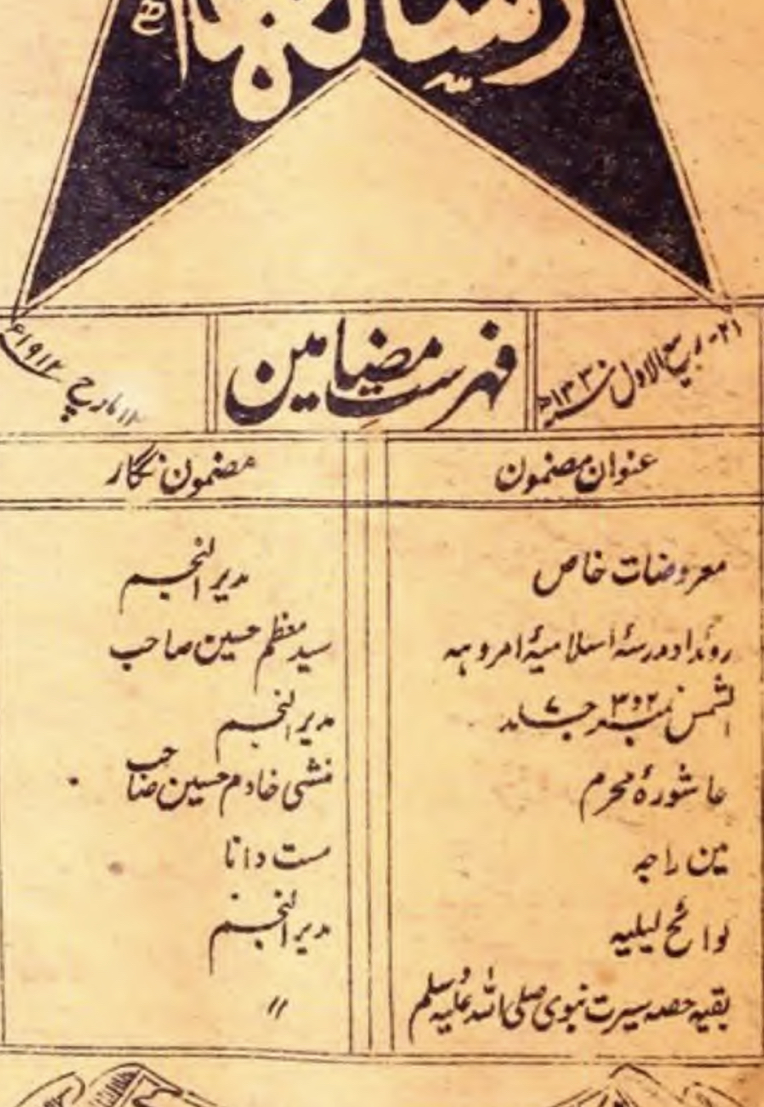 رسالہ
۲۱- ربیع الاول سنہ ۱۳۳۰ھ
فہرست مضامین
مارچ ۱۹۱۲ء
عنوان مضمون
مضمون نگار
معروضات خاص
مدیر النجم
روئداد مدرسۂ اسلامیۂ امروہہ
سید معظم حسین صاحب
الشمس نمبر ۲و۳ جلد ۷
مدیر النجم
عاشورۂ محرم
منشی خادم حسین صاحب
تین راجہ
مست داتا
لوائح لیلیہ
مدیر النجم
بقیہ حصہ سیرت نبوی صلی اللہ علیہ وسلم
〃